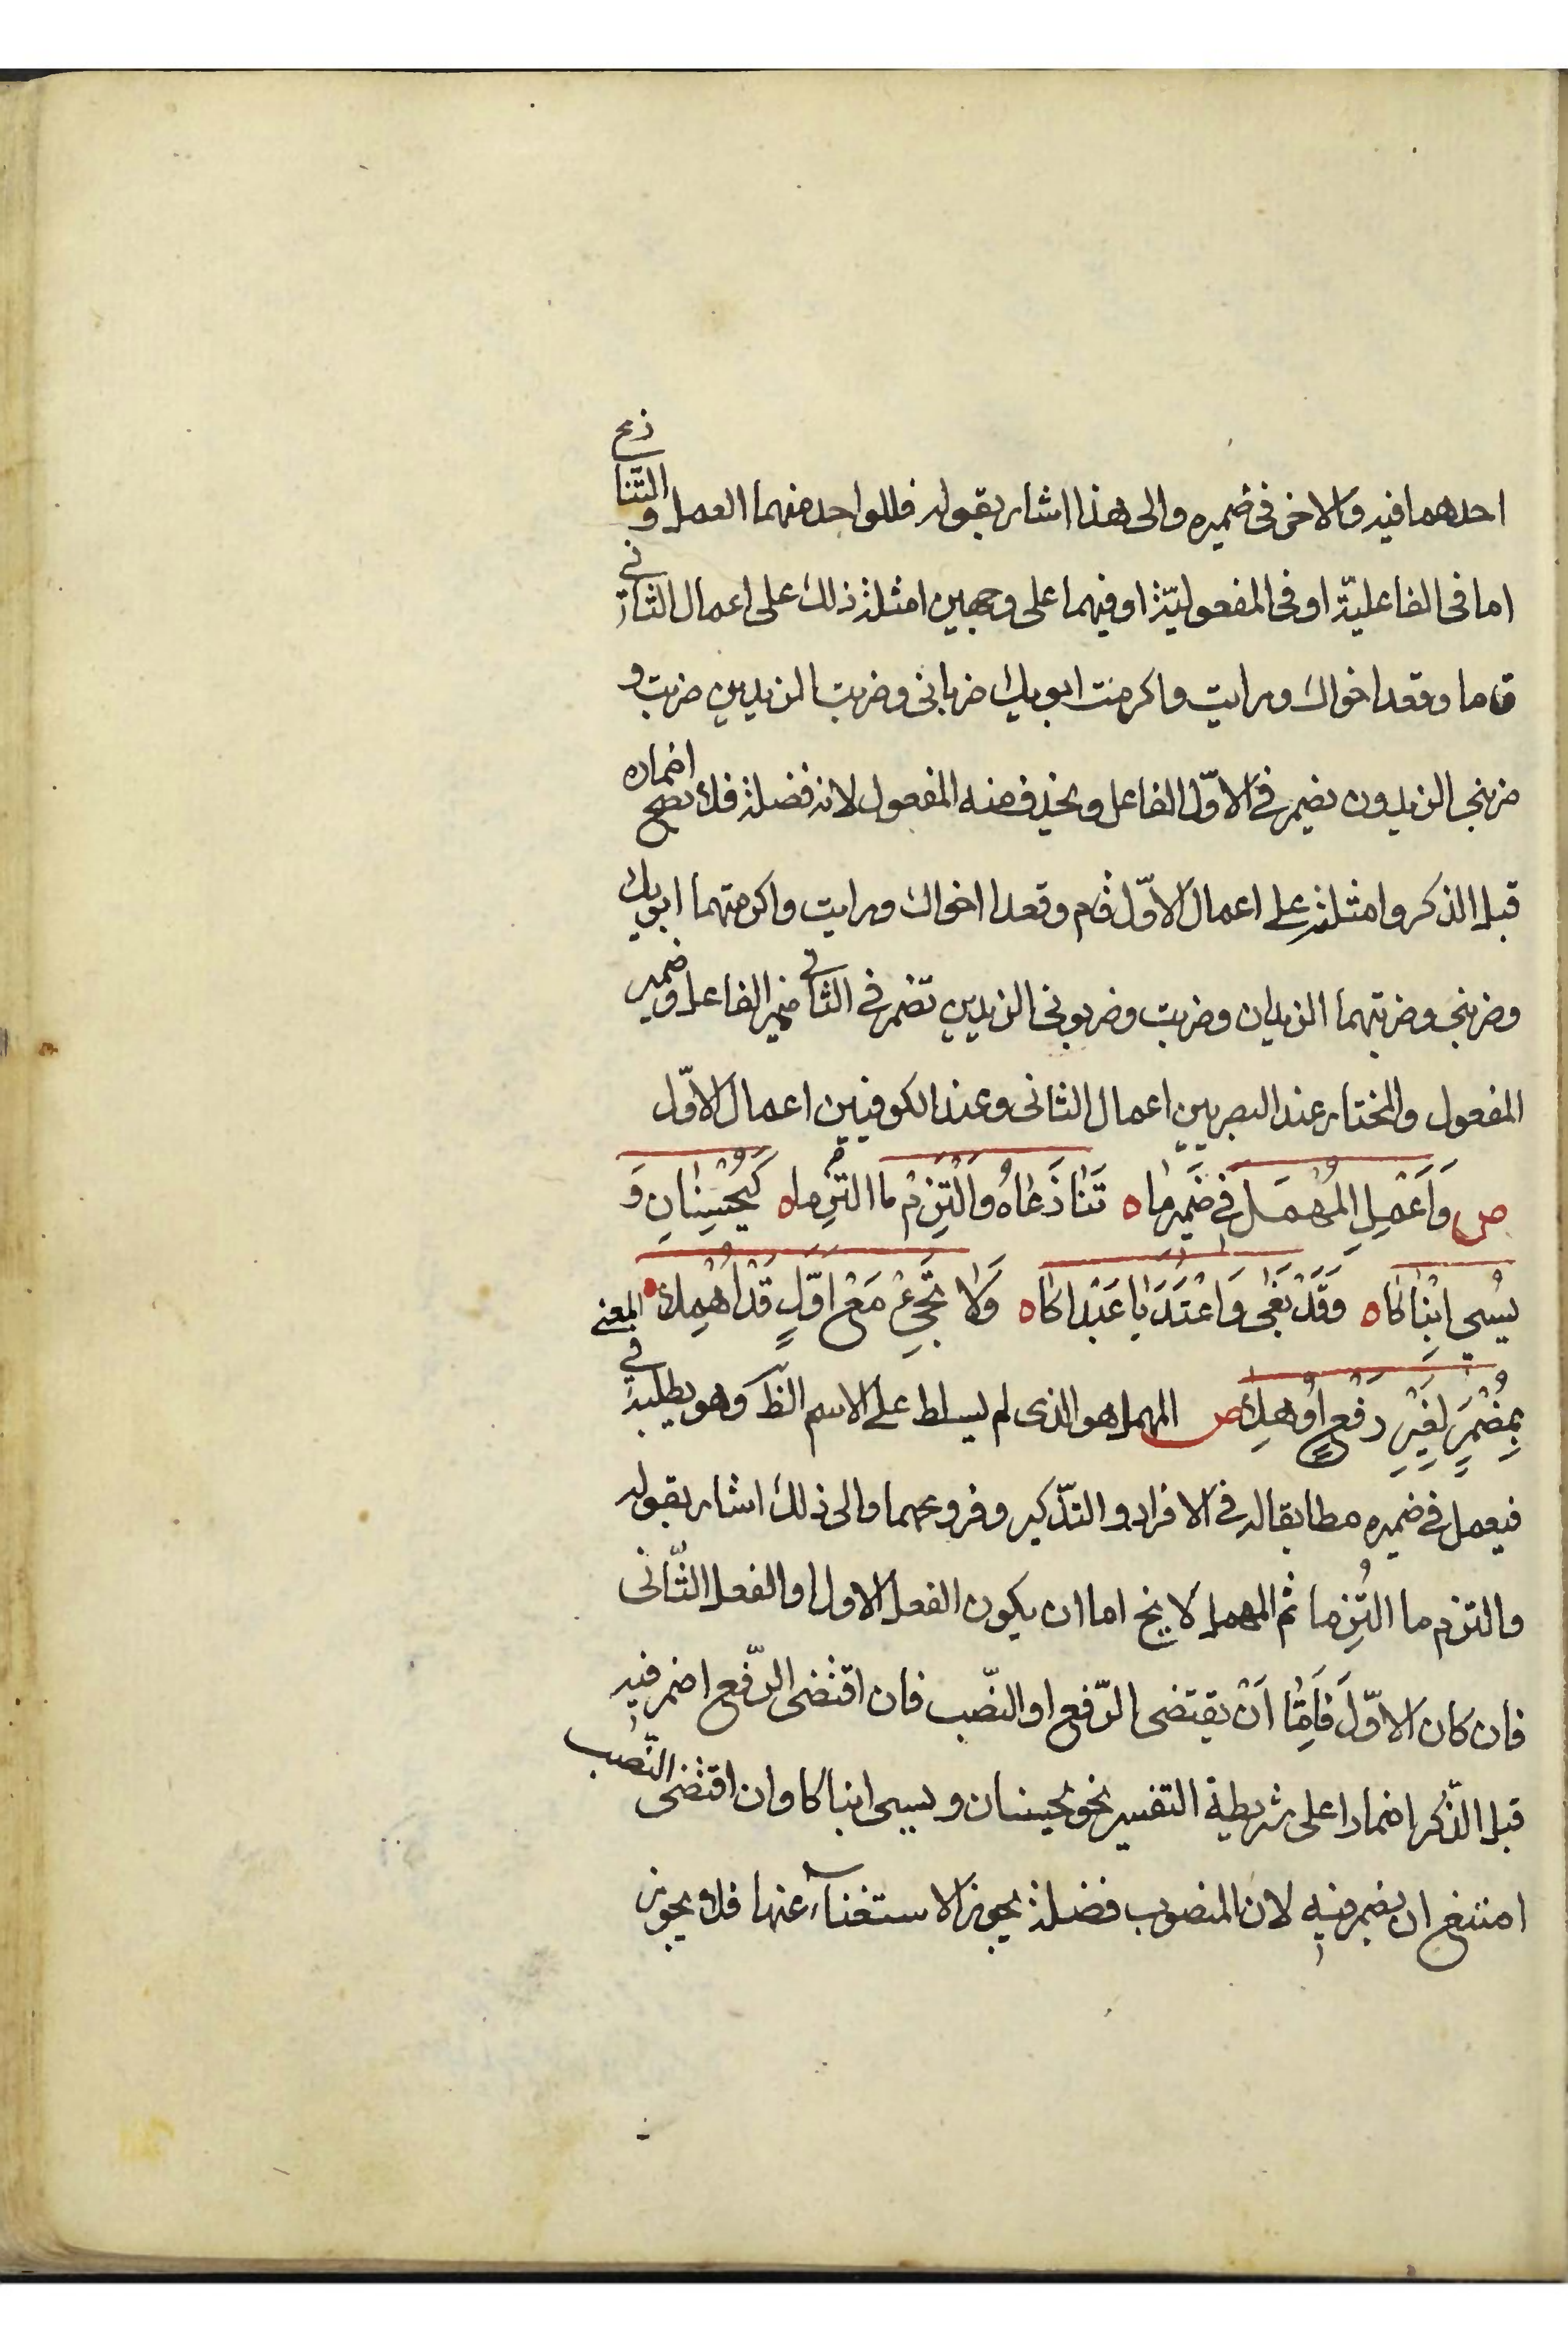 احدهما فيه والاخر فى ضميره والى هذا اشار بقوله فللواحد منهما العمل والتنازع
اما فى الفاعلية او فى المفعوليّة او فيهما على وجهين امثلة ذلك على اعمال الثانى
قاما وقعد اخواك ورايت واكرمت ابويك ضربانى وضربت الزيدين ضربت و
ضربنى الزيدون يضمر فى الاوّل الفاعل ويحذف منه المفعول لانه فضلة فلا يصح اضماره
قبل الذكر وامثلته على اعمال الاوّل قام وقعدا اخواك ورايت واكرمتهما ابويك
وضربنى وضربتهما الزيدان وضربت وضربونى الزيدين تضمر فى الثانى ضمير الفاعل وضمير
المفعول والمختار عند البصريين اعمال الثانى وعند الكوفيين اعمال الاوّل
ص وَاَعْمِلِ المُهْمَلَ فى ضَميرِ مَا ه تَنَازَعَاهُ وَالْتَزِمْ ما التُزِما ه كَيُحْسِنَانِ وَ
يُسىِ ابْنَاكَا ه وَقَدْ بَغَى وَاعْتَدَيَا عَبْدَاكَا ه وَلَا تَجِئْ مَعْ اَوَّلٍ قَدْ اُهْمِلَا ه
بِمُضْمَرٍ لِغَيْرِ رَفْعٍ اُوهِلَا ص المهمل هو الذى لم يسلط على الاسم الظَ وهو يطلبه فى المعنى
فيعمل فى ضميره مطابقا له فى الافراد والتذكير وفروعهما والى ذلك اشار بقوله
والتزم ما التُزِما ثم المهمل لا يخ اما ان يكون الفعل الاول او الفعل الثّانى
فان كان الاوّلَ فَاِمَّا اَنْ يقتضى الرّفع او النّصب فان اقتضى الرّفع اضمر فيه
قبل الذّكر اضمارا على شريطة التفسير نحو يحسنان ويسيى ابناكا وان اقتضى النّصب
امتنع ان يضمر فيه لان المنصوب فضلة يجوز الاستغناء عنها فلا يجوز